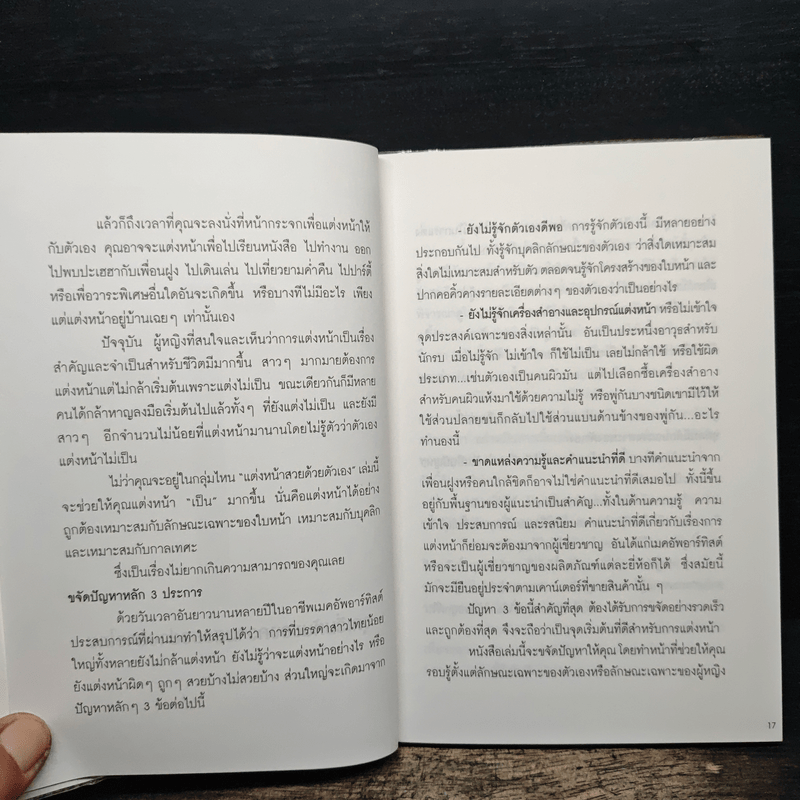 แล้วก็ถึงเวลาที่คุณจะลงนั่งที่หน้ากระจกเพื่อแต่งหน้าให้
กับตัวเอง คุณอาจจะแต่งหน้าเพื่อไปเรียนหนังสือ ไปทำงาน ออก
ไปพบปะเฮฮากับเพื่อนฝูง ไปเดินเล่น ไปเที่ยวยามค่ำคืน ไปปาร์ตี้
หรือเพื่อวาระพิเศษอื่นใดอันจะเกิดขึ้น หรือบางทีไม่มีอะไร เพียง
แต่แต่งหน้าอยู่บ้านเฉยๆ เท่านั้นเอง
ปัจจุบัน ผู้หญิงที่สนใจและเห็นว่าการแต่งหน้าเป็นเรื่อง
สำคัญและจำเป็นสำหรับชีวิตมีมากขึ้น สาวๆ มากมายต้องการ
แต่งหน้าแต่ไม่กล้าเริ่มต้นเพราะแต่งไม่เป็น ขณะเดียวกันก็มีหลาย
คนได้กล้าหาญลงมือเริ่มต้นไปแล้วทั้งๆ ที่ยังแต่งไม่เป็น และยังมี
สาวๆ อีกจำนวนไม่น้อยที่แต่งหน้ามานานโดยไม่รู้ตัวว่าตัวเอง
แต่งหน้าไม่เป็น
ไม่ว่าคุณจะอยู่ในกลุ่มไหน "แต่งหน้าสวยด้วยตัวเอง" เล่มนี้
จะช่วยให้คุณแต่งหน้า "เป็น" มากขึ้น นั่นคือแต่งหน้าได้อย่าง
ถูกต้องเหมาะสมกับลักษณะเฉพาะของใบหน้า เหมาะสมกับบุคลิก
และเหมาะสมกับกาลเทศะ
ซึ่งเป็นเรื่องไม่ยากเกินความสามารถของคุณเลย
ขจัดปัญหาหลัก 3 ประการ
ด้วยวันเวลาอันยาวนานหลายปีในอาชีพเมคอัพอาร์ทิสต์
ประสบการณ์ที่ผ่านมาทำให้สรุปได้ว่า การที่บรรดาสาวไทยน้อย
ใหญ่ทั้งหลายยังไม่กล้าแต่งหน้า ยังไม่รู้ว่าจะแต่งหน้าอย่างไร หรือ
ยังแต่งหน้าผิดๆ ถูกๆ สวยบ้างไม่สวยบ้าง ส่วนใหญ่จะเกิดมาจาก
ปัญหาหลักๆ 3 ข้อต่อไปนี้
- ยังไม่รู้จักตัวเองดีพอ การรู้จักตัวเองนี้ มีหลายอย่าง
ประกอบกันไป ทั้งรู้จักบุคลิกลักษณะของตัวเอง ว่าสิ่งใดเหมาะสม
สิ่งใดไม่เหมาะสมสำหรับตัว ตลอดจนรู้จักโครงสร้างของใบหน้า และ
ปากคอคิ้วคางรายละเอียดต่างๆ ของตัวเองว่าเป็นอย่างไร
- ยังไม่รู้จักเครื่องสำอางและอุปกรณ์แต่งหน้า หรือไม่เข้าใจ
จุดประสงค์เฉพาะของสิ่งเหล่านั้น อันเป็นประหนึ่งอาวุธสำหรับ
นักรบ เมื่อไม่รู้จัก ไม่เข้าใจ ก็ใช้ไม่เป็น เลยไม่กล้าใช้ หรือใช้ผิด
ประเภท...เช่นตัวเองเป็นคนผิวมัน แต่ไปเลือกซื้อเครื่องสำอาง
สำหรับคนผิวแห้งมาใช้ด้วยความไม่รู้ หรือพู่กันบางชนิดเขามีไว้ให้
ใช้ส่วนปลายขนก็กลับไปใช้ส่วนแบนด้านข้างของพู่กัน...อะไร
ทำนองนี้
- ขาดแหล่งความรู้และคำแนะนำที่ดี บางทีคำแนะนำจาก
เพื่อนฝูงหรือคนใกล้ชิดก็อาจไม่ใช่คำแนะนำที่ดีเสมอไป ทั้งนี้ขึ้น
อยู่กับพื้นฐานของผู้แนะนำเป็นสำคัญ...ทั้งในด้านความรู้ ความ
เข้าใจ ประสบการณ์ และรสนิยม คำแนะนำที่ดีเกี่ยวกับเรื่องการ
แต่งหน้าก็ย่อมจะต้องมาจากผู้เชี่ยวชาญ อันได้แก่เมคอัพอาร์ทิสต์
หรือจะเป็นผู้เชี่ยวชาญของผลิตภัณฑ์แต่ละยี่ห้อก็ได้ ซึ่งสมัยนี้
มักจะมียืนอยู่ประจำตามเคาน์เตอร์ที่ขายสินค้านั้น ๆ
ปัญหา 3 ข้อนี้สำคัญที่สุด ต้องได้รับการขจัดอย่างรวดเร็ว
และถูกต้องที่สุด จึงจะถือว่าเป็นจุดเริ่มต้นที่ดีสำหรับการแต่งหน้า
หนังสือเล่มนี้จะขจัดปัญหาให้คุณ โดยทำหน้าที่ช่วยให้คุณ
รอบรู้ตั้งแต่ลักษณะเฉพาะของตัวเองหรือลักษณะเฉพาะของผู้หญิง
17